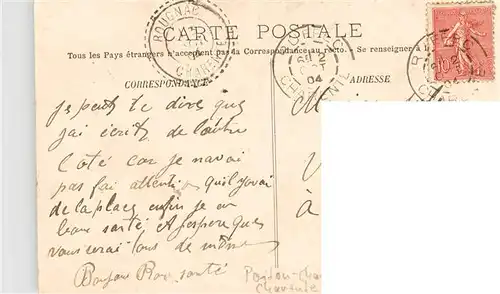 CARTE POSTALE
Tous les Pays étrangers n'acceptent pas la Correspondance au recto. Se renseigner à
CORRESPONDANCE
ADRESSE
ROUILLAC
CHARENTE
04
CHARENTE
je peut te dire que
jai écrit de lautre
Coté car je navai
pas fai attention quil yavai
de la place enfin je en
bonne santé et jespere que
vous serai tous de même
Bonjour
santé
à
Charente